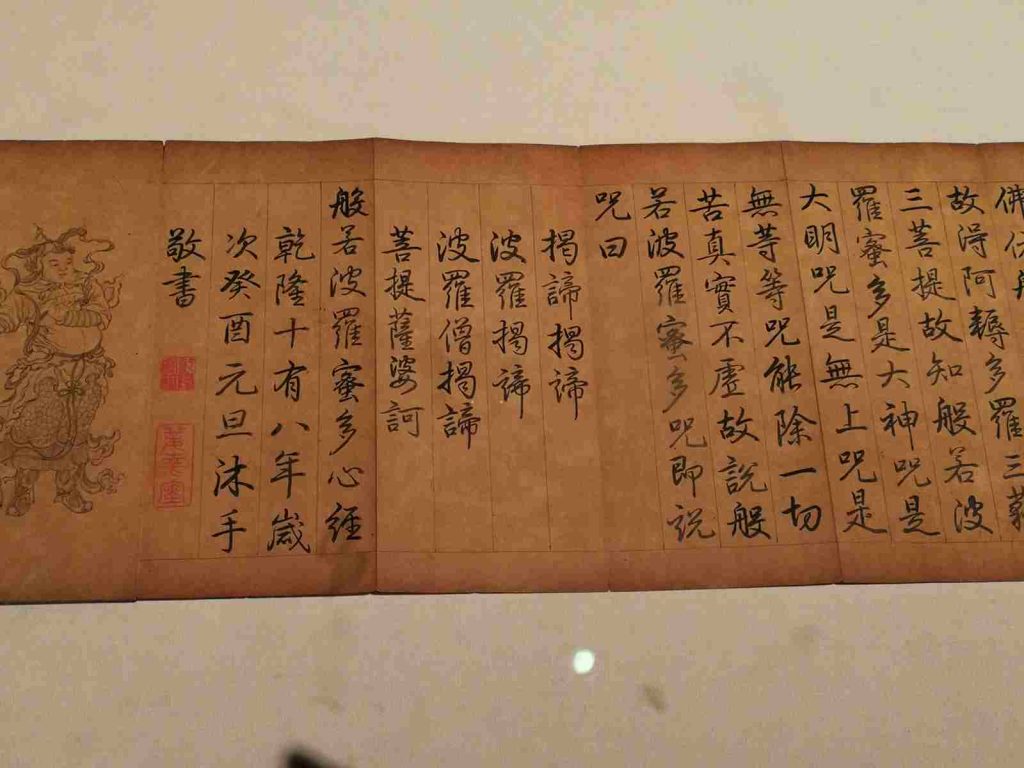 佛
故得阿耨多羅三藐
三菩提故知般若波
羅蜜多是大神呪是
大明呪是無上呪是
無等等呪能除一切
苦真實不虛故說般
若波羅蜜多呪即說
呪曰
揭諦揭諦
波羅揭諦
波羅僧揭諦
菩提薩婆訶
般若波羅蜜多心經
乾隆十有八年歲
次癸酉元旦沐手
敬書